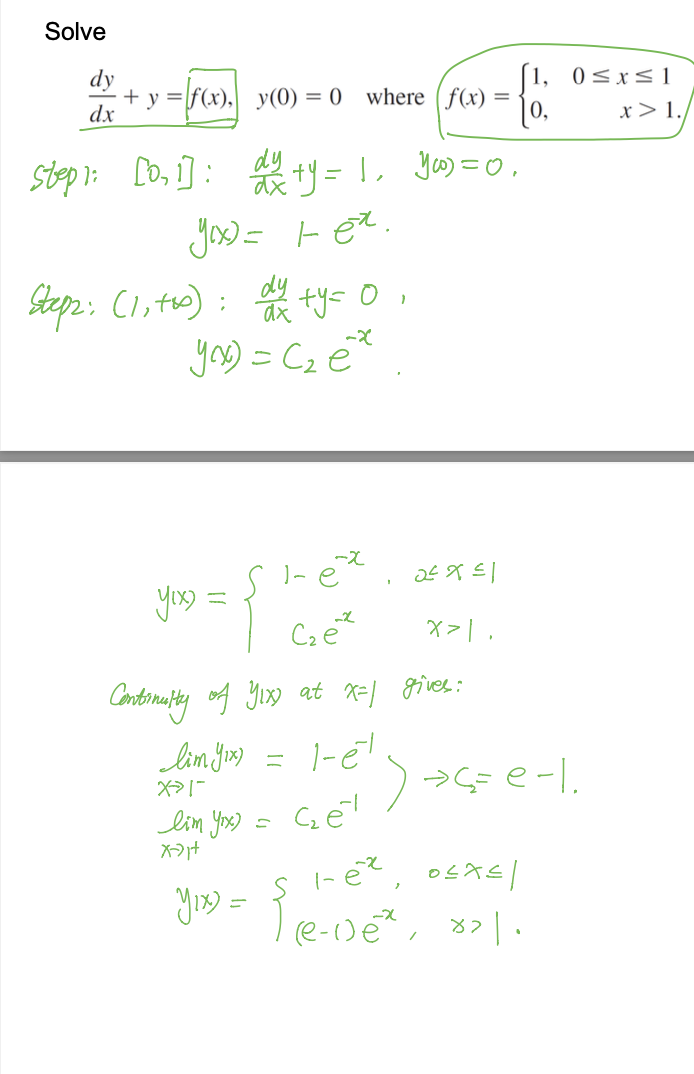 Solve
dy/dx + y = f(x), y(0) = 0 where f(x) = { 1, 0 ≤ x ≤ 1
0, x > 1.
Step 1: [0, 1]: dy/dx + y = 1, y(0) = 0.
y(x) = 1 - e^{-x}.
Step 2: (1, +∞): dy/dx + y = 0,
y(x) = C₂ e^{-x}.
y(x) = { 1 - e^{-x}, 0 ≤ x ≤ 1
C₂ e^{-x} x > 1.
Continuity of y(x) at x=1 gives:
lim_{x→1^-} y(x) = 1 - e^{-1}
lim_{x→1^+} y(x) = C₂ e^{-1} } → C₂ = e - 1.
y(x) = { 1 - e^{-x}, 0 ≤ x ≤ 1
(e-1) e^{-x}, x > 1.